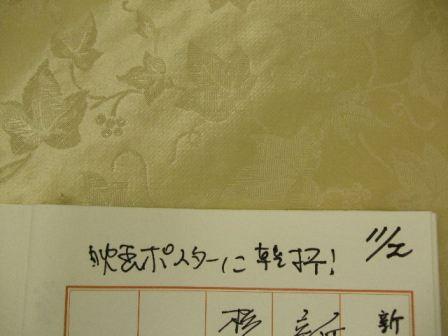 映画ポスターに乾杯! 11/2
新